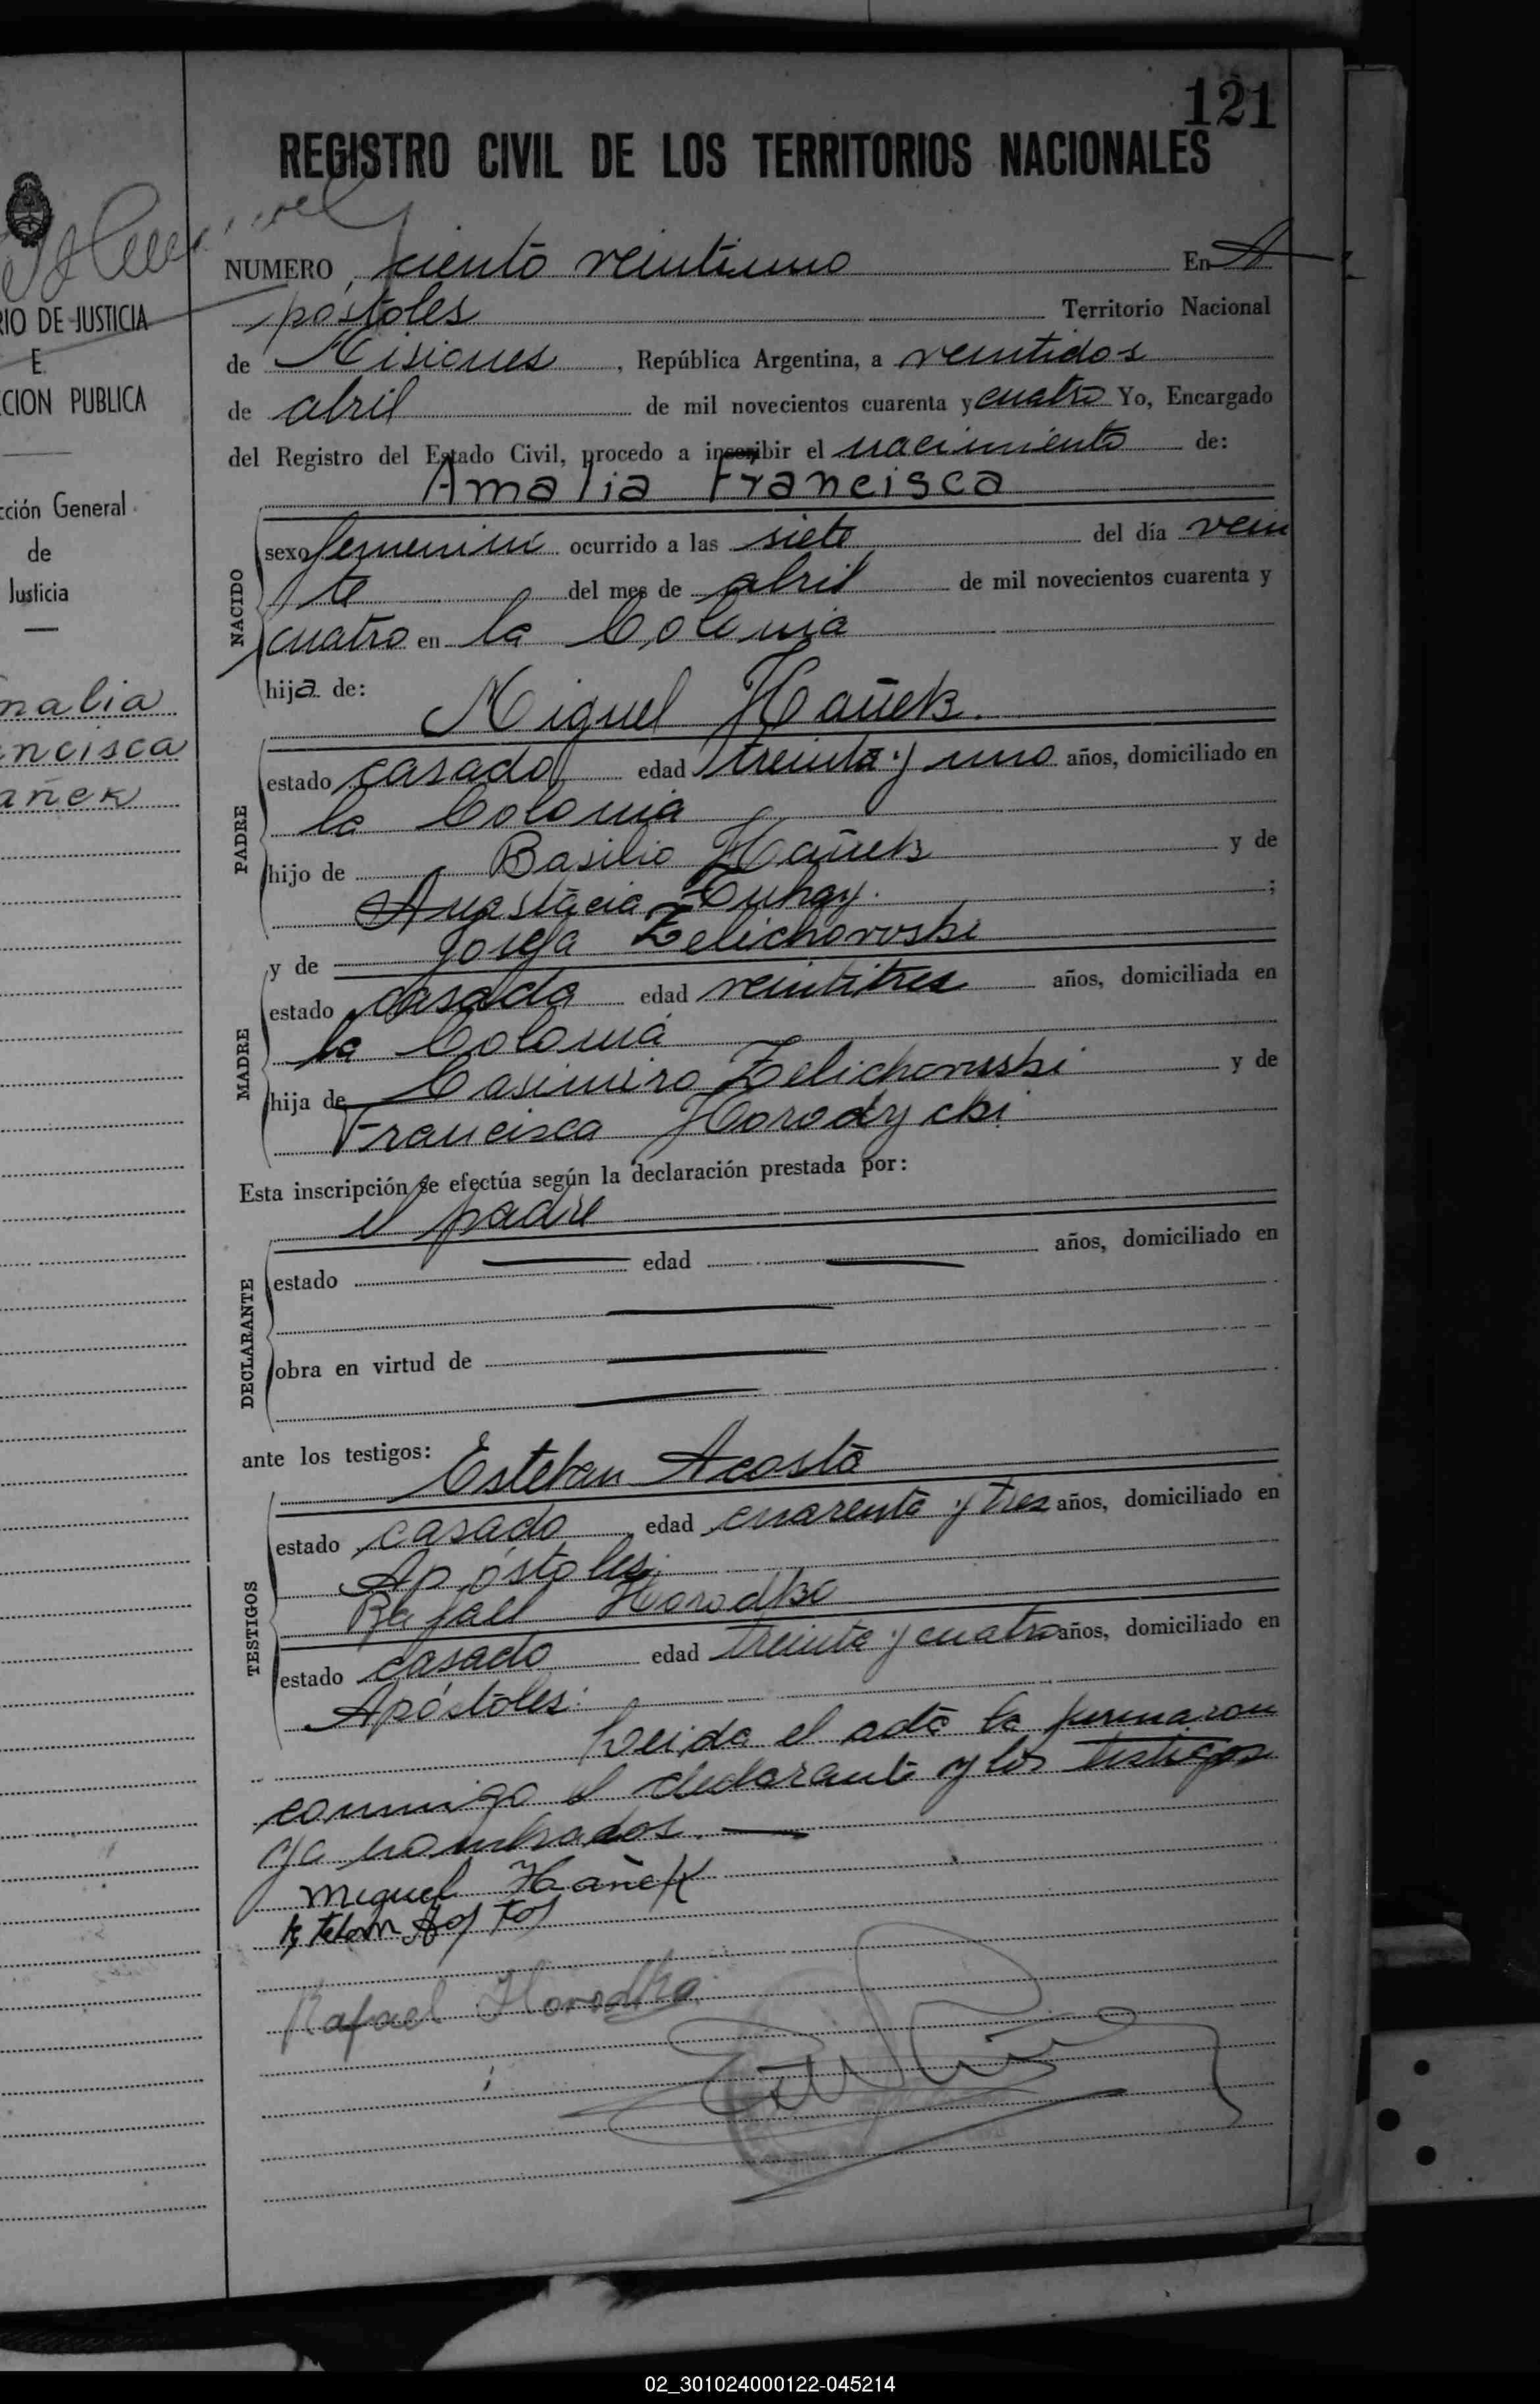 121
REGISTRO CIVIL DE LOS TERRITORIOS NACIONALES
NUMERO ciento veintiuno En A
póstoles Territorio Nacional
de Misiones, República Argentina, a veintidos
de abril de mil novecientos cuarenta y cuatro Yo, Encargado
del Registro del Estado Civil, procedo a inscribir el nacimiento de:
Amalia Francisca
NACIDO
sexo femenino ocurrido a las siete del día vein
te del mes de abril de mil novecientos cuarenta y
cuatro en la Colonia
hija de:
Miguel Hañek.
PADRE
estado casado edad treinta y uno años, domiciliado en
la Colonia
hijo de Basilio Hañek y de
Anastacia Tuhay. ;
y de Josefa Zelichovski
MADRE
estado casada edad veintitres años, domiciliada en
la Colonia
hija de Casimiro Zelichovski y de
Francisca Horodycki
Esta inscripción se efectúa según la declaración prestada por:
el padre
DECLARANTE
estado edad años, domiciliado en
obra en virtud de
ante los testigos:
Esteban Acosta
TESTIGOS
estado casado edad cuarenta y tres años, domiciliado en
Apóstoles.
Rafael Horodko
estado casado edad treinta y cuatro años, domiciliado en
Apóstoles:
Leida el acta la firmaron
conmigo el declarante y los testigos
ya nombrados.
Miguel Hañek
Rafael Horodko
RIO DE JUSTICIA
E
CCION PUBLICA
cción General
de
Justicia
malia
ncisca
añek
02_301024000122-045214